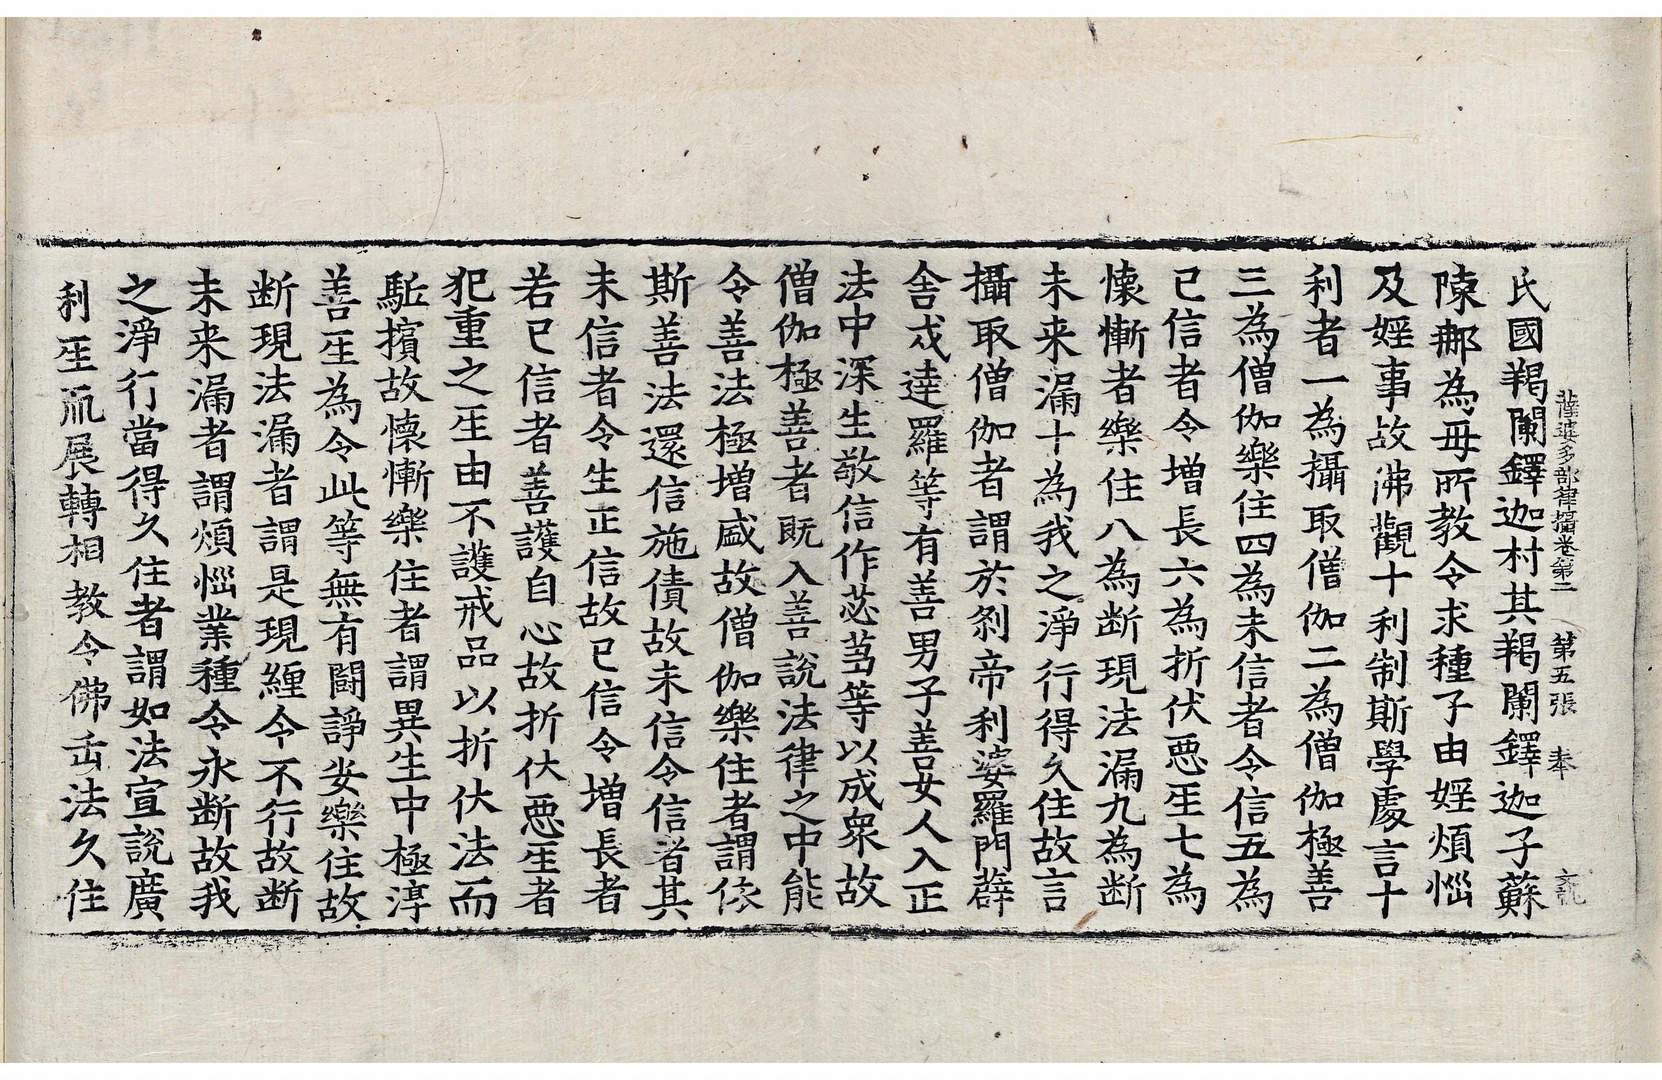 薩婆多部律攝卷第二 第五張 奉
氏國羯闌鐸迦村其羯闌鐸迦子蘇
陣那為母所教令求種子由婬煩惱
及婬事故佛觀十利制斯學處言十
利者一為攝取僧伽二為僧伽極善
三為僧伽樂住四為未信者令信五為
已信者令增長六為折伏惡人七為
懷慚者樂住八為断現法漏九為断
未来漏十為我之淨行得久住故言
攝取僧伽者謂於刹帝利婆羅門薜
舍戍達羅等有善男子善女人入正
法中深生敬信作苾芻等以成衆故
僧伽極善者既入善說法律之中能
令善法極增盛故僧伽樂住者謂依
斯善法還信施債故未信令信者其
未信者令生正信故已信令增長者
若已信者善護自心故折伏惡𤯔者
犯重之𤯔由不護戒品以折伏法而
駈擯故懷慚樂住者謂異生中極淳
善𤯔為令此等無有鬪諍安樂住故
断現法漏者謂是現纏令不行故断
未来漏者謂煩惱業種令永断故我
之淨行當得久住者謂如法宣說廣
利𤯔爪展轉相教令佛缶法久住